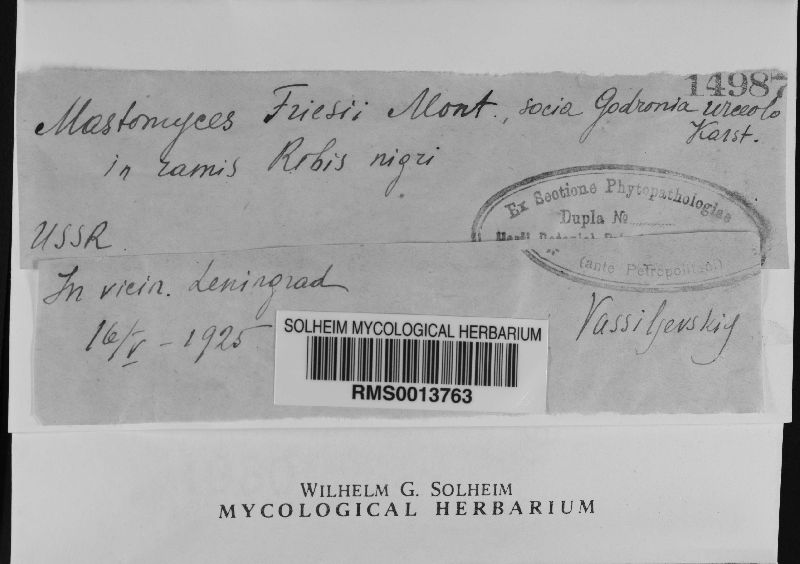 14987
Mastomyces Friesii Mont., socia Godronia urceolo
Karst.
in ramis Ribis nigri
Ex Sectione Phytopathologiae
Dupla №
(ante Petropolitan.)
USSR
In vicin. Leningrad
16/V - 1925
Vassiljevskiy
SOLHEIM MYCOLOGICAL HERBARIUM
RMS0013763
WILHELM G. SOLHEIM
MYCOLOGICAL HERBARIUM